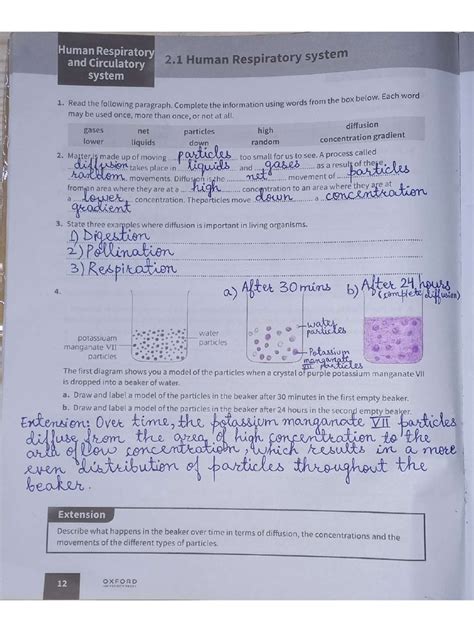 Human Respiratory
and Circulatory
system
2.1 Human Respiratory system
1. Read the following paragraph. Complete the information using words from the box below. Each word
may be used once, more than once, or not at all.
gases net particles high diffusion
lower liquids down random concentration gradient
2. Matter is made up of moving particles too small for us to see. A process called
diffusion takes place in liquids and gases as a result of these
random movements. Diffusion is the net movement of particles
from an area where they are at a high concentration to an area where they are at
a lower concentration. The particles move down a concentration
gradient
3. State three examples where diffusion is important in living organisms.
1) Digestion
2) Pollination
3) Respiration
4.
a) After 30 mins b) After 24 hours
(complete diffusion)
potassium
manganate VII
particles
water
particles
water
particles
Potassium
manganate
VII particles
The first diagram shows you a model of the particles when a crystal of purple potassium manganate VII
is dropped into a beaker of water.
a. Draw and label a model of the particles in the beaker after 30 minutes in the first empty beaker.
b. Draw and label a model of the particles in the beaker after 24 hours in the second empty beaker.
Extension: Over time, the potassium manganate VII particles
diffuse from the area of high concentration to the
area of low concentration, which results in a more
even distribution of particles throughout the
beaker.
Extension
Describe what happens in the beaker over time in terms of diffusion, the concentrations and the
movements of the different types of particles.
12
OXFORD
UNIVERSITY PRESS